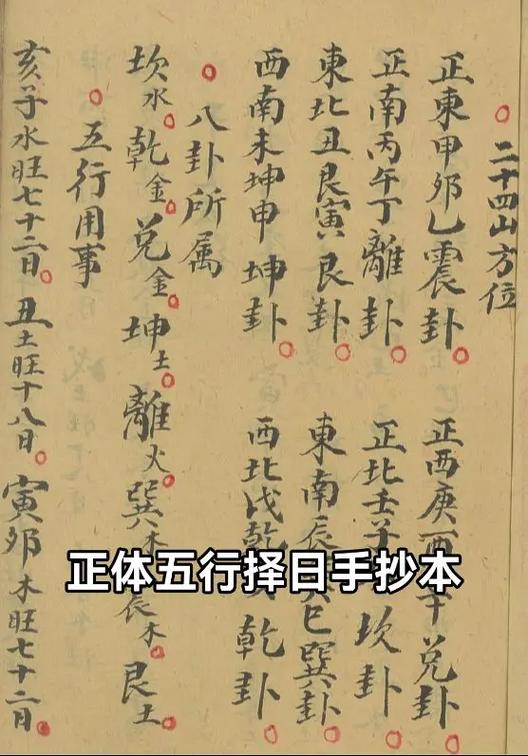 二十四山方位
正東甲卯乙震卦 正西庚酉兑卦
正南丙午丁離卦 正北壬子坎卦
東北丑艮寅艮卦 東南辰巳巽卦
西南未坤申坤卦 西北戌乾乾卦
八卦所属
坎水 乾金 兑金 坤土 離火 巽木 木 艮土
五行用事
亥子水旺七十二日 丑土旺十八日 寅卯木旺七十二日
正体五行择日手抄本